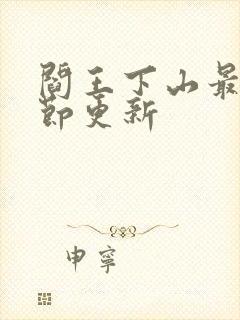 閻王下山最
節更新
申寧